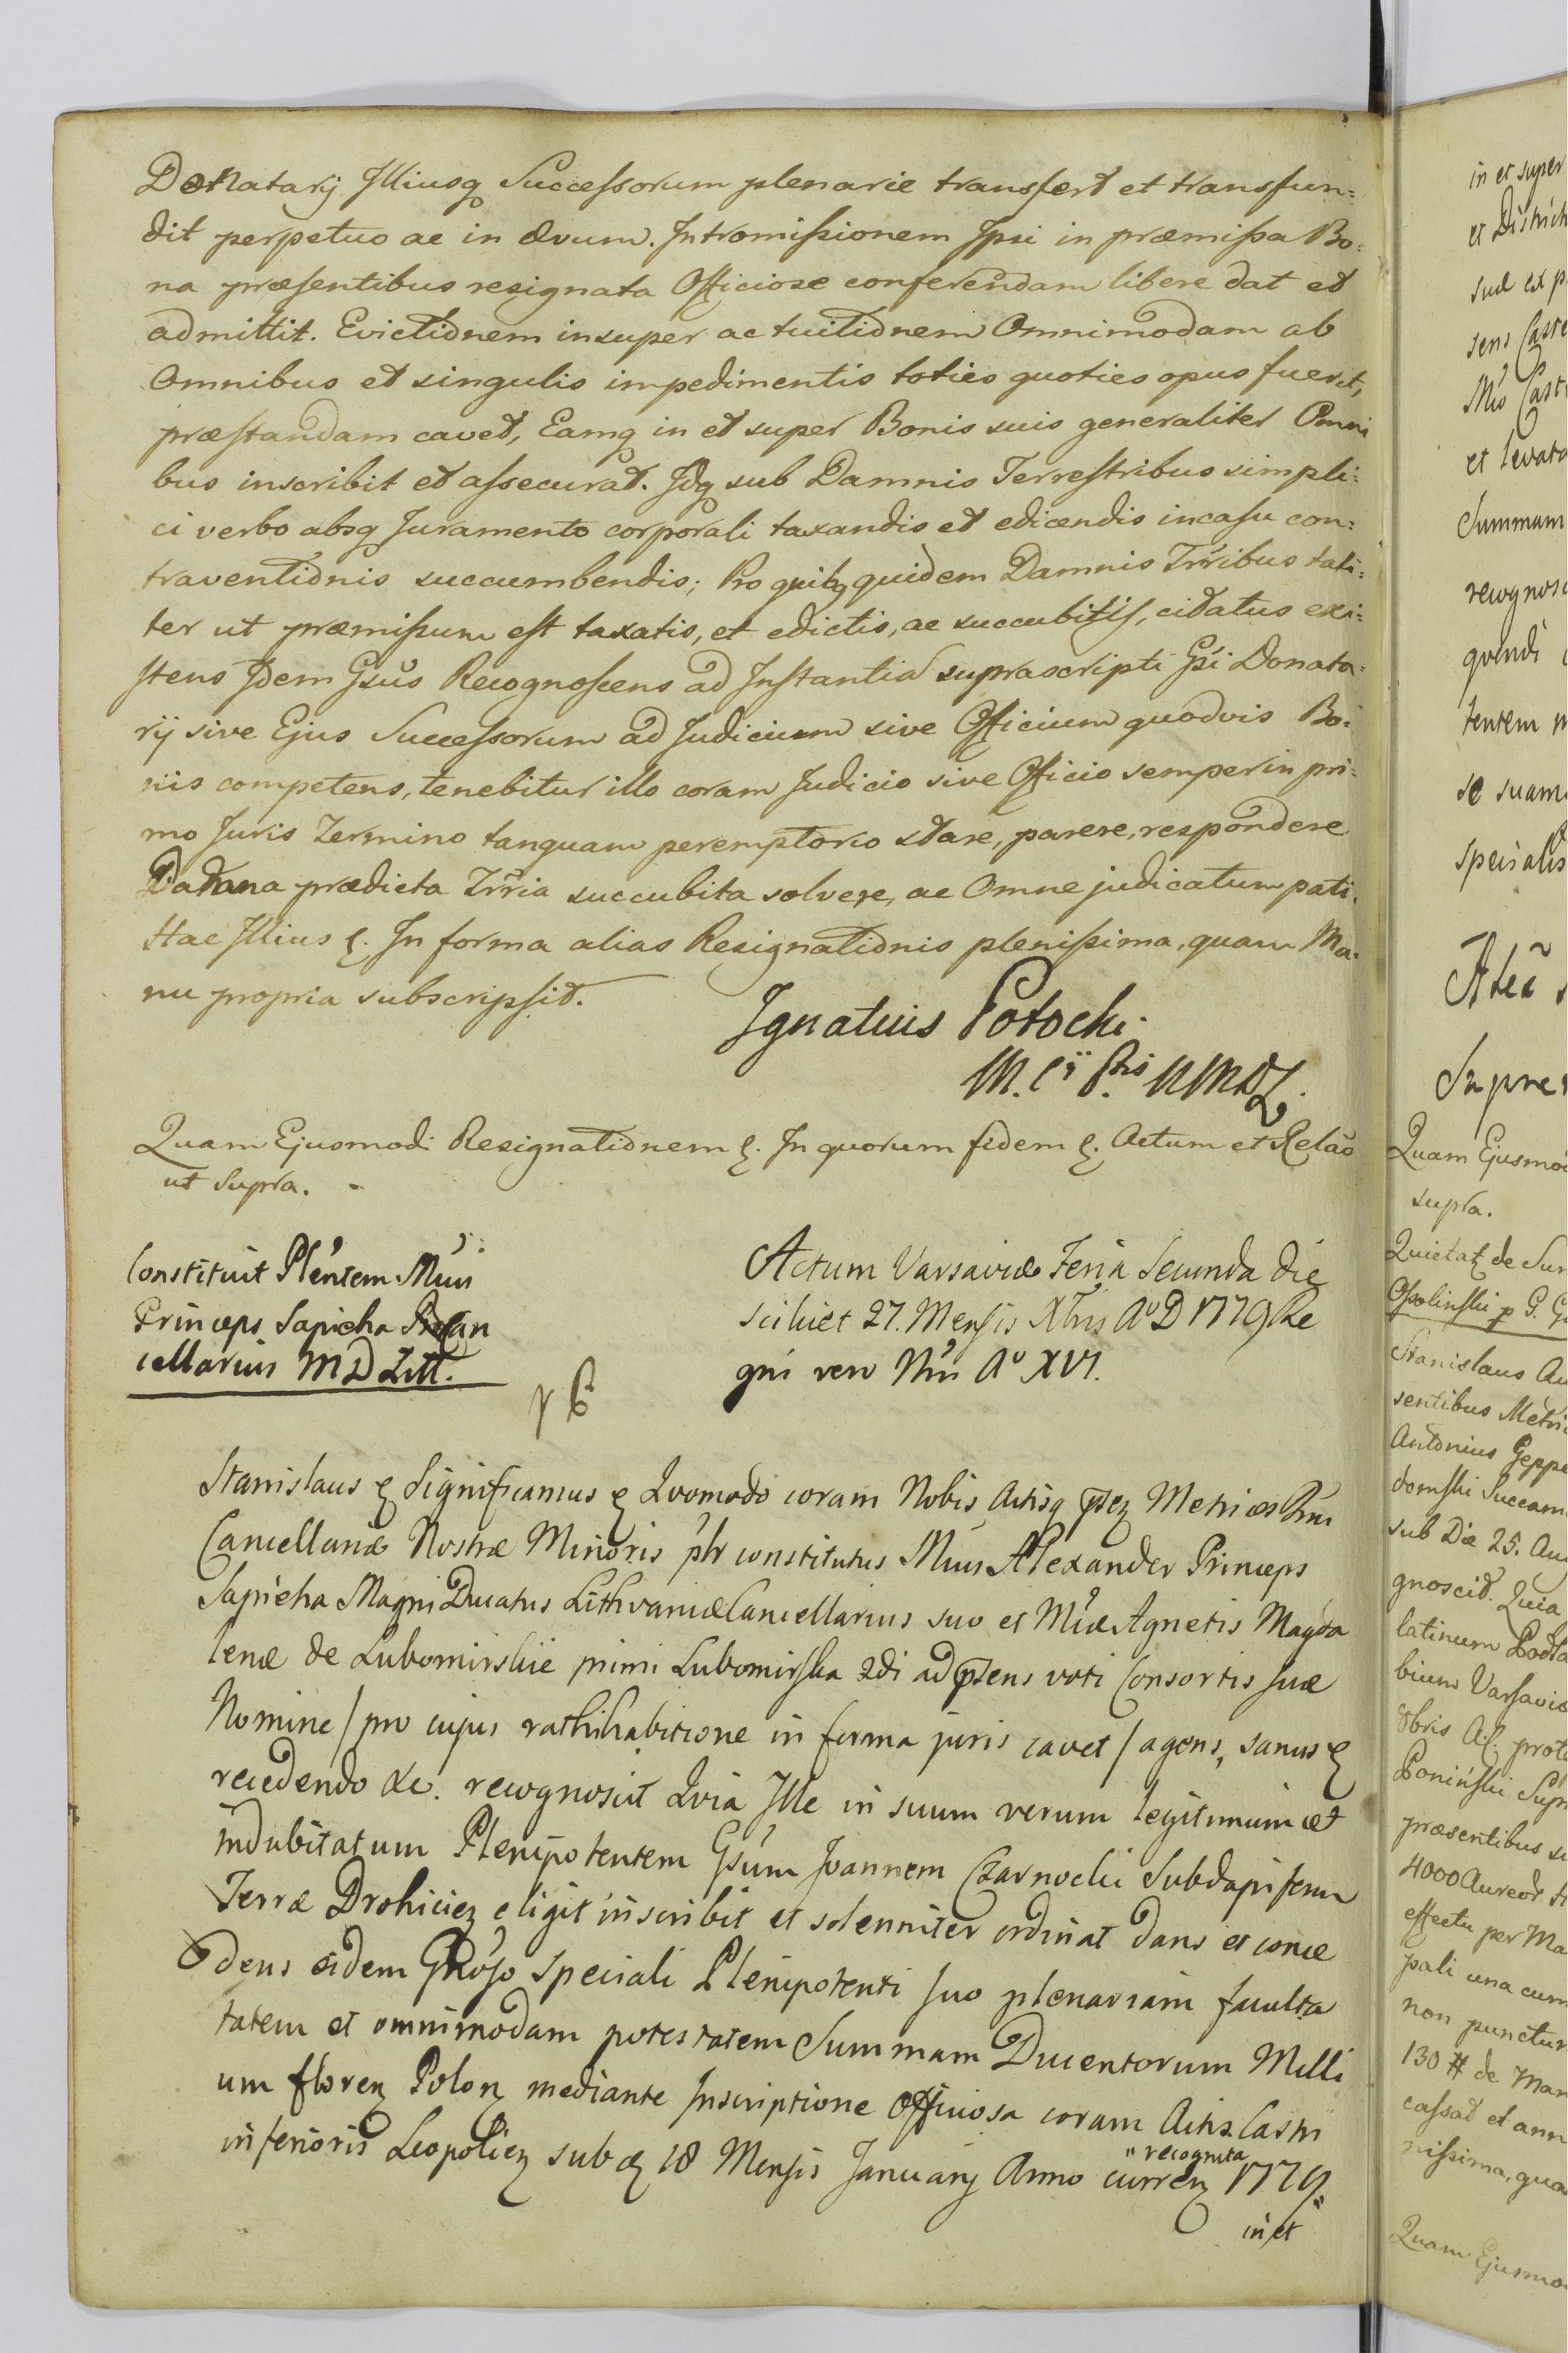 Donatarij Illiusq Successorum plenarie transfert et transfun=
dit perpetuo ac in ævum. Intromissionem Ipsi in præmissa Bo=
na præsentibus resignata Officiose conferendam libere dat et
admittit. Evictionem insuper ac tuitionem Omnimodam ab
Omnibus et singulis impedimentis toties quoties opus fuerit,
præstandam cavet, Eamq in et super Bonis suis generaliter Omni
bus inscribit et assecurat. Idq sub Damnis Terrestribus simpli=
ci verbo absq Juramento corporali taxandis et edicendis in casu con=
traventionis succumbendis; Pro quibq quidem Damnis Trribus tali=
ter ut præmissum est taxatis, et edictis, ac succubitis, citatus exi=
stens Idem Gsus Recognoscens ad Instantia suprascripti Gsi Donata=
rij sive Ejus Successorum ad Judicium sive Officium quodvis Bo=
nis competens, tenebitur illo coram Judicio sive Officio semper in pri=
mo Juris Termino tanquam peremptorio stare, parere, respondere
Damna prædicta Trria succubita solvere, ac Omne judicatum pati.
Hac Illius &. In forma alias Resignationis plenissima, quam Ma=
nu propria subscripsit.
Ignatius Potocki
Quam Ejusmodi Resignationem &. In quorum fidem &. Actum et Relão
ut supra.
Constituit Pléntem Mús
Princeps Sapieha
cellarius MD Litt.
Actum Varsaviæ Feria Secunda die
scilicet 27. Mensis Xbris Aº D 1779 Re
gni vero Nri Aº XVI.
Stanislaus & Significamus & Quomodo coram Nobis Actisq ptez Metrices Rni
Cancellariæ Nostræ Minoris plr constitutus Mús Alexander Princeps
Sapieha Magni Ducatus Lithvaniæ Cancellarius suo et Mǽ Agnetis Magda
lenæ de Lubomirskie primi Lubomirska 2di ad ptens voti Consortis suæ
Nomine / pro cujus rathihabitione in forma juris cavet / agens, sanus &
recedendo &c. recognoscit Qvia Ille in suum verum legitimum et
indubitatum Plenipotentem Gsúm Joannem Czarnocki Subdapiferum
Terræ Drohiciez eligit inscribit et solenniter ordinat dans et conce
dens eidem Gnoso speciali Plenipotenti suo plenariam faculta
tatem et omnimodam potestatem Summam Ducentorum Milli
um floren Polon mediante Inscriptione Officiosa coram Actis Castri
inferioris Leopolien sub d 18 Mensis Januarij Anno curren 1779.
"recognita
in et
in et super
et District
suæ ex p
sens Caste
et levata
Summam
recognosc
quendi
tentem
se suam
specialis
Supre
Quam Ejusmo
supra.
Quietat de Sum
Ossolinski p G. G
Stanislaus Au
sentibus Metri
Antonius Geppe
domski Succam
sub Die 25. Aug
gnoscit. Quia
latinum Podla
bium Varsaviæ
8bris Aº prote
Poninski Supr
præsentibus su
4000 Aureor
effectu per Ma
pali una cum
non punctur
130 # de Man
cassat et ann
nissima, qua
Quam Ejusmo